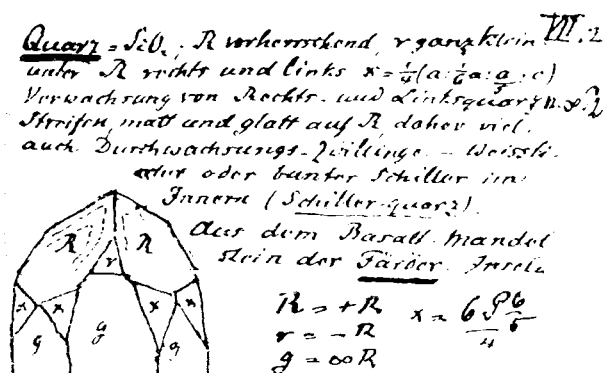 Quarz = SiO₂; R vorherrschend, r ganz klein VII.2
unter R rechts und links x = ¼(a:⅙a:a/5:c)
Verwachsung von Rechts- und Linksquarz n. x?
Streifen, matt und glatt auf R, daher viel.
auch Durchwachsungs-Zwillinge. – Weissli-
cher oder bunter Schiller im
Innern (Schiller-quarz).
Aus dem Basalt-Mandel
stein der Faröer Inseln
R R
r
x x x x
g g g
R = +R x = 6P6/5
4
r = -R
g = ∞R